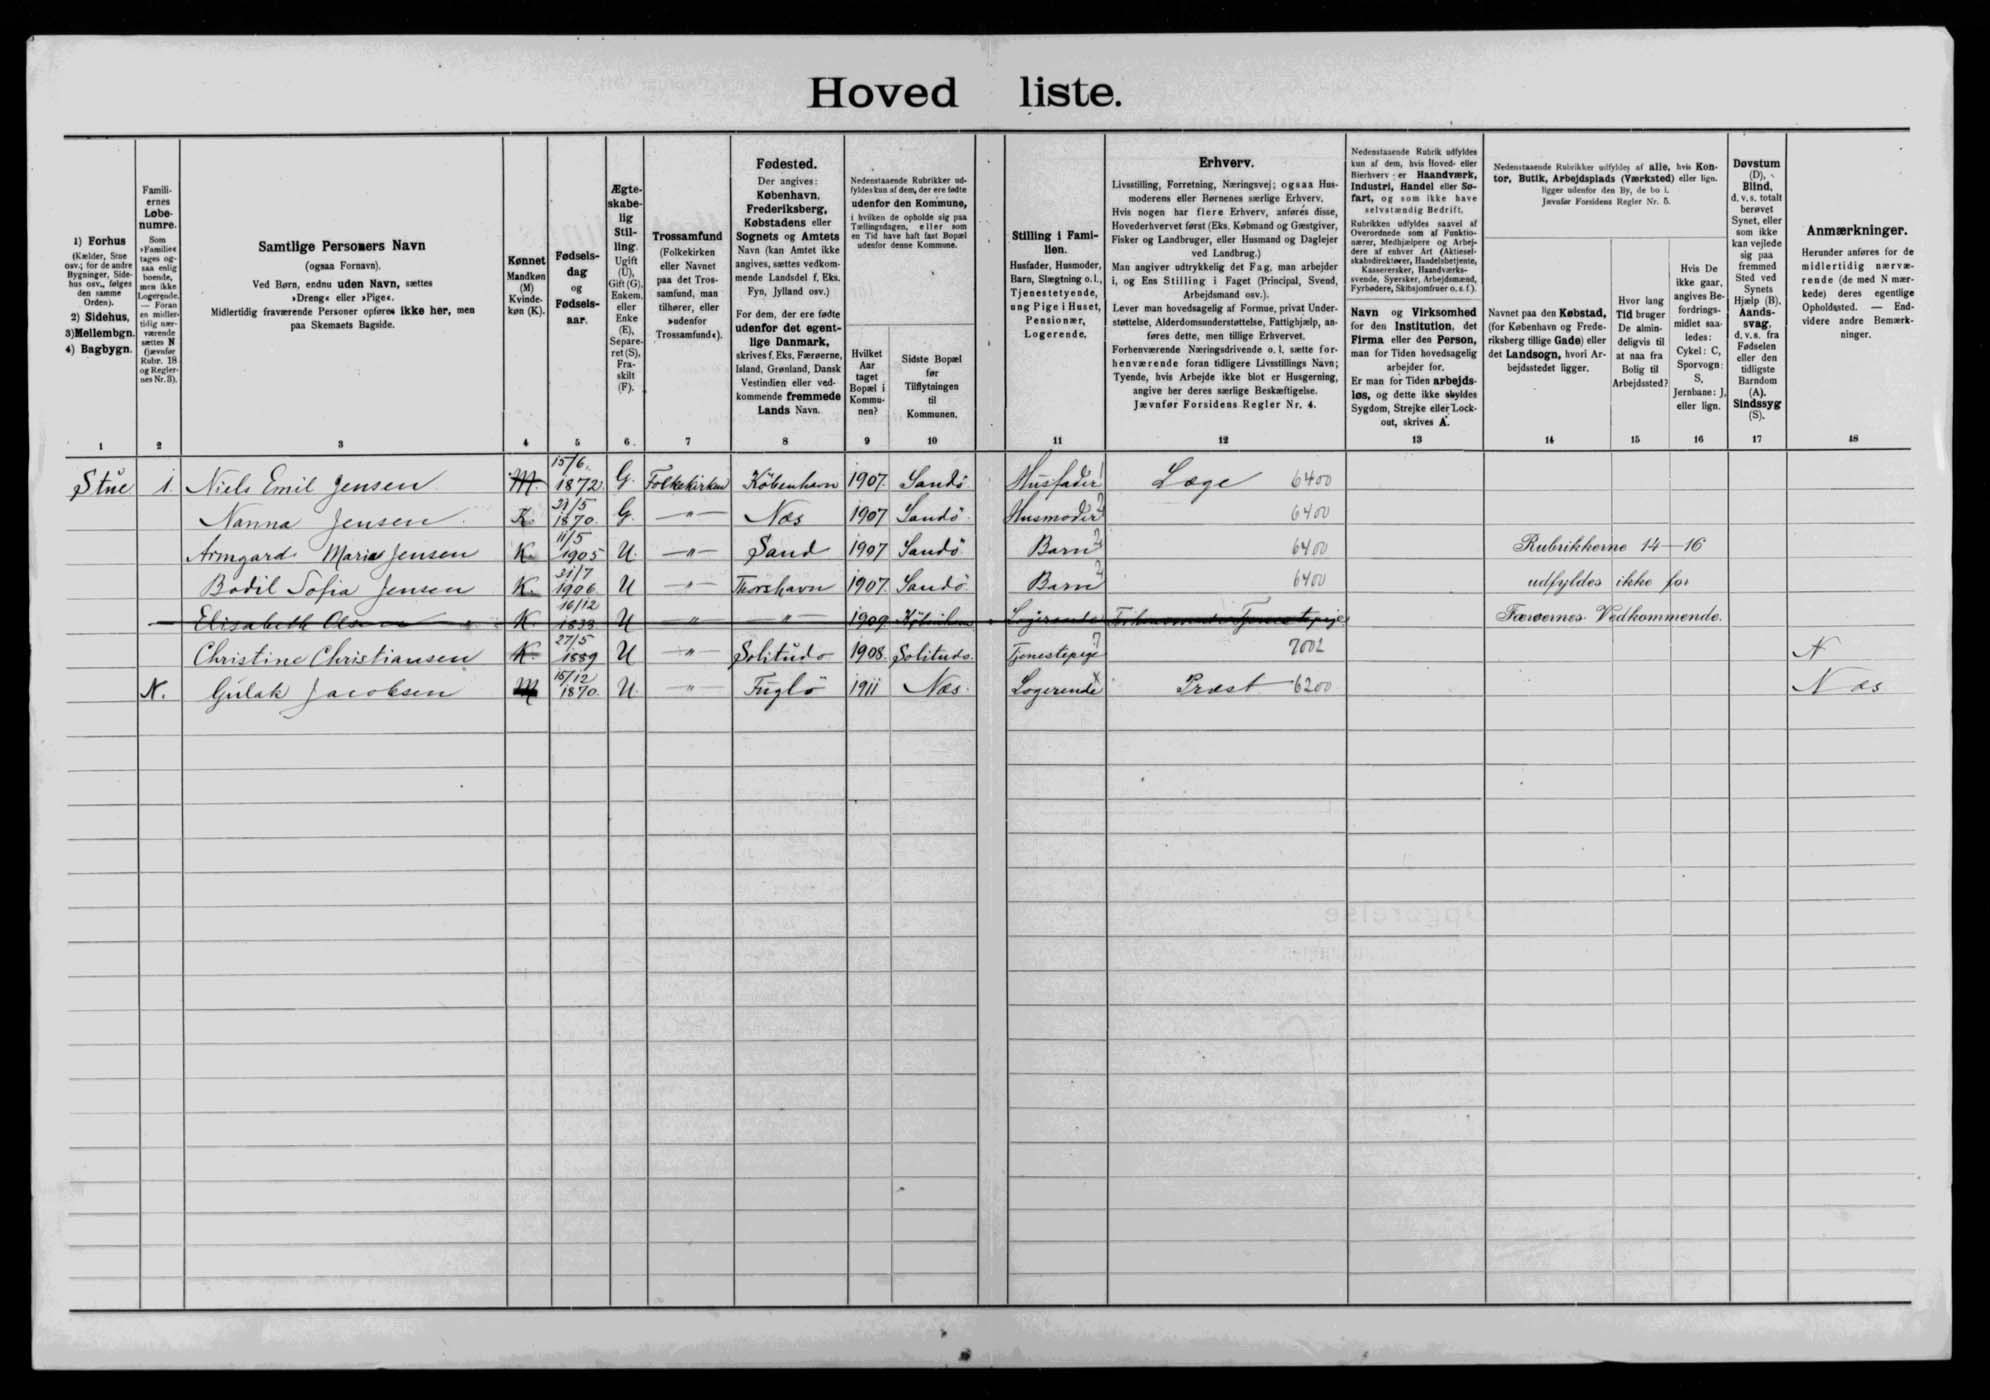 Hoved liste.
1) Forhus
(Kælder, Stue
osv.; for de andre
Bygninger, Side-
hus osv., følges
den samme
Orden).
2) Sidehus,
3)Mellembgn.
4) Bagbygn.
1
Famili-
ernes
Løbe-
numre.
Som
»Familie«
tages og-
saa enlig
boende,
men ikke
Logerende.
— Foran
en midler-
tidig nær-
værende
sættes N
(jævnfør
Rubr. 18
og Regler-
nes Nr. 3).
2
Samtlige Personers Navn
(ogsaa Fornavn).
Ved Børn, endnu uden Navn, sættes
»Dreng« eller »Pige«.
Midlertidig fraværende Personer opføres ikke her, men
paa Skemaets Bagside.
3
Kønnet
Mandkøn
(M)
Kvinde-
køn (K).
4
Fødsels-
dag
og
Fødsels-
aar.
5
Ægte-
skabe-
lig
Stil-
ling.
Ugift
(U),
Gift (G),
Enkem.
eller
Enke
(E),
Separe-
ret (S),
Fra-
skilt
(F).
6
Trossamfund
(Folkekirken
eller Navnet
paa det Tros-
samfund, man
tilhører, eller
»udenfor
Trossamfund«).
7
Fødested.
Der angives:
København,
Frederiksberg,
Købstadens eller
Sognets og Amtets
Navn (kan Amtet ikke
angives, sættes vedkom-
mende Landsdel f. Eks.
Fyn, Jylland osv.)
For dem, der ere fødte
udenfor det egent-
lige Danmark,
skrives f. Eks. Færøerne,
Island, Grønland, Dansk
Vestindien eller ved-
kommende fremmede
Lands Navn.
8
Nedenstaaende Rubrikker ud-
fyldes kun af dem, der ere fødte
udenfor den Kommune,
i hvilken de opholde sig paa
Tællingsdagen, eller som
en Tid have haft fast Bopæl
udenfor denne Kommune.
Hvilket
Aar
taget
Bopæl i
Kommu-
nen?
9
Sidste Bopæl
før
Tilflytningen
til
Kommunen.
10
Stilling i Fami-
lien.
Husfader, Husmoder,
Barn, Slægtning o.l.,
Tjenestetyende,
ung Pige i Huset,
Pensionær,
Logerende.
11
Erhverv.
Livsstilling, Forretning, Næringsvej; ogsaa Hus-
moderens eller Børnenes særlige Erhverv.
Hvis nogen har flere Erhverv, anføres disse,
Hovederhvervet først (Eks. Købmand og Gæstgiver,
Fisker og Landbruger, eller Husmand og Daglejer
ved Landbrug.)
Man angiver udtrykkelig det Fag, man arbejder
i, og Ens Stilling i Faget (Principal, Svend,
Arbejdsmand osv.).
Lever man hovedsagelig af Formue, privat Under-
støttelse, Alderdomsunderstøttelse, Fattighjælp, an-
føres dette, men tillige Erhvervet.
Forhenværende Næringsdrivende o. l. sætte for-
henværende foran tidligere Livsstillings Navn;
Tyende, hvis Arbejde ikke blot er Husgerning,
angive her deres særlige Beskæftigelse.
Jævnfør Forsidens Regler Nr. 4.
12
Nedenstaaende Rubrik udfyldes
kun af dem, hvis Hoved- eller
Bierhverv er Haandværk,
Industri, Handel eller Sø-
fart, og som ikke have
selvstændig Bedrift.
Rubrikken udfyldes saavel af
Overordnede som af Funktio-
nærer, Medhjælpere og Arbej-
dere af enhver Art (Aktiesel-
skabsdirektører, Handelsbetjente,
Kassererksker, Haandværks-
svende, Syersker, Arbejdsmænd,
Fyrbødere, Skibsjomfruer o. s. f.).
Navn og Virksomhed
for den Institution, det
Firma eller den Person,
man for Tiden hovedsagelig
arbejder for.
Er man for Tiden arbejds-
løs, og dette ikke skyldes
Sygdom, Strejke eller Lock-
out, skrives A.
13
Nedenstaaende Rubrikker udfyldes af alle, hvis Kon-
tor, Butik, Arbejdsplads (Værksted) eller lign.
ligger udenfor den By, de bo i.
Jævnfør Forsidens Regler Nr. 5.
Navnet paa den Købstad,
(for København og Frede-
riksberg tillige Gade) eller
det Landsogn, hvori Ar-
bejdsstedet ligger.
14
Hvor lang
Tid bruger
De almin-
deligvis til
at naa fra
Bolig til
Arbejdssted?
15
Hvis De
ikke gaar,
angives Be-
fordrings-
midlet saa-
ledes:
Cykel: C,
Sporvogn:
S,
Jernbane: J,
eller lign.
16
Døvstum
(D),
Blind,
d. v. s. totalt
berøvet
Synet, eller
som ikke
kan vejlede
sig paa
fremmed
Sted ved
Synets
Hjælp (B).
Aands-
svag,
d. v. s. fra
Fødselen
eller den
tidligste
Barndom
(A).
Sindssyg
(S).
17
Anmærkninger.
Herunder anføres for de
midlertidig nærvæ-
rende (de med N mær-
kede) deres egentlige
Opholdssted. — End-
videre andre Bemærk-
ninger.
18
Stue 1. Niels Emil Jensen M. 15/6. 1872. G. Folkekirken København 1907. Sandö. Husfader 1 Læge 6400
Nanna Jensen. K. 31/5 1870. G. —"— Næs 1907 Sandö. Husmoder 2 6400
Armgard Maria Jensen K. 11/5 1905 U. —"— Sand 1907 Sandö Barn 2 6400 Rubrikkerne 14—16
Bodil Sofia Jensen K. 31/7 1906. U —"— Thorshavn 1907. Sandö. Barn 2 6400 udfyldes ikke for
Elisabeth Olsen K. 16/12 1838 U —"— —"— 1909. Köbenhavn Logerende Forhenværende Tjenestepige Færøernes Vedkommende.
Christine Christiansen K. 27/5 1889 U —"— Solitude 1908. Solitude. Tjenestepige 7 7002 N
N. Gulak Jacobsen M 15/12 1870. U. —"— Fuglö 1911 Næs. Logerende x Præst 6200 Næs